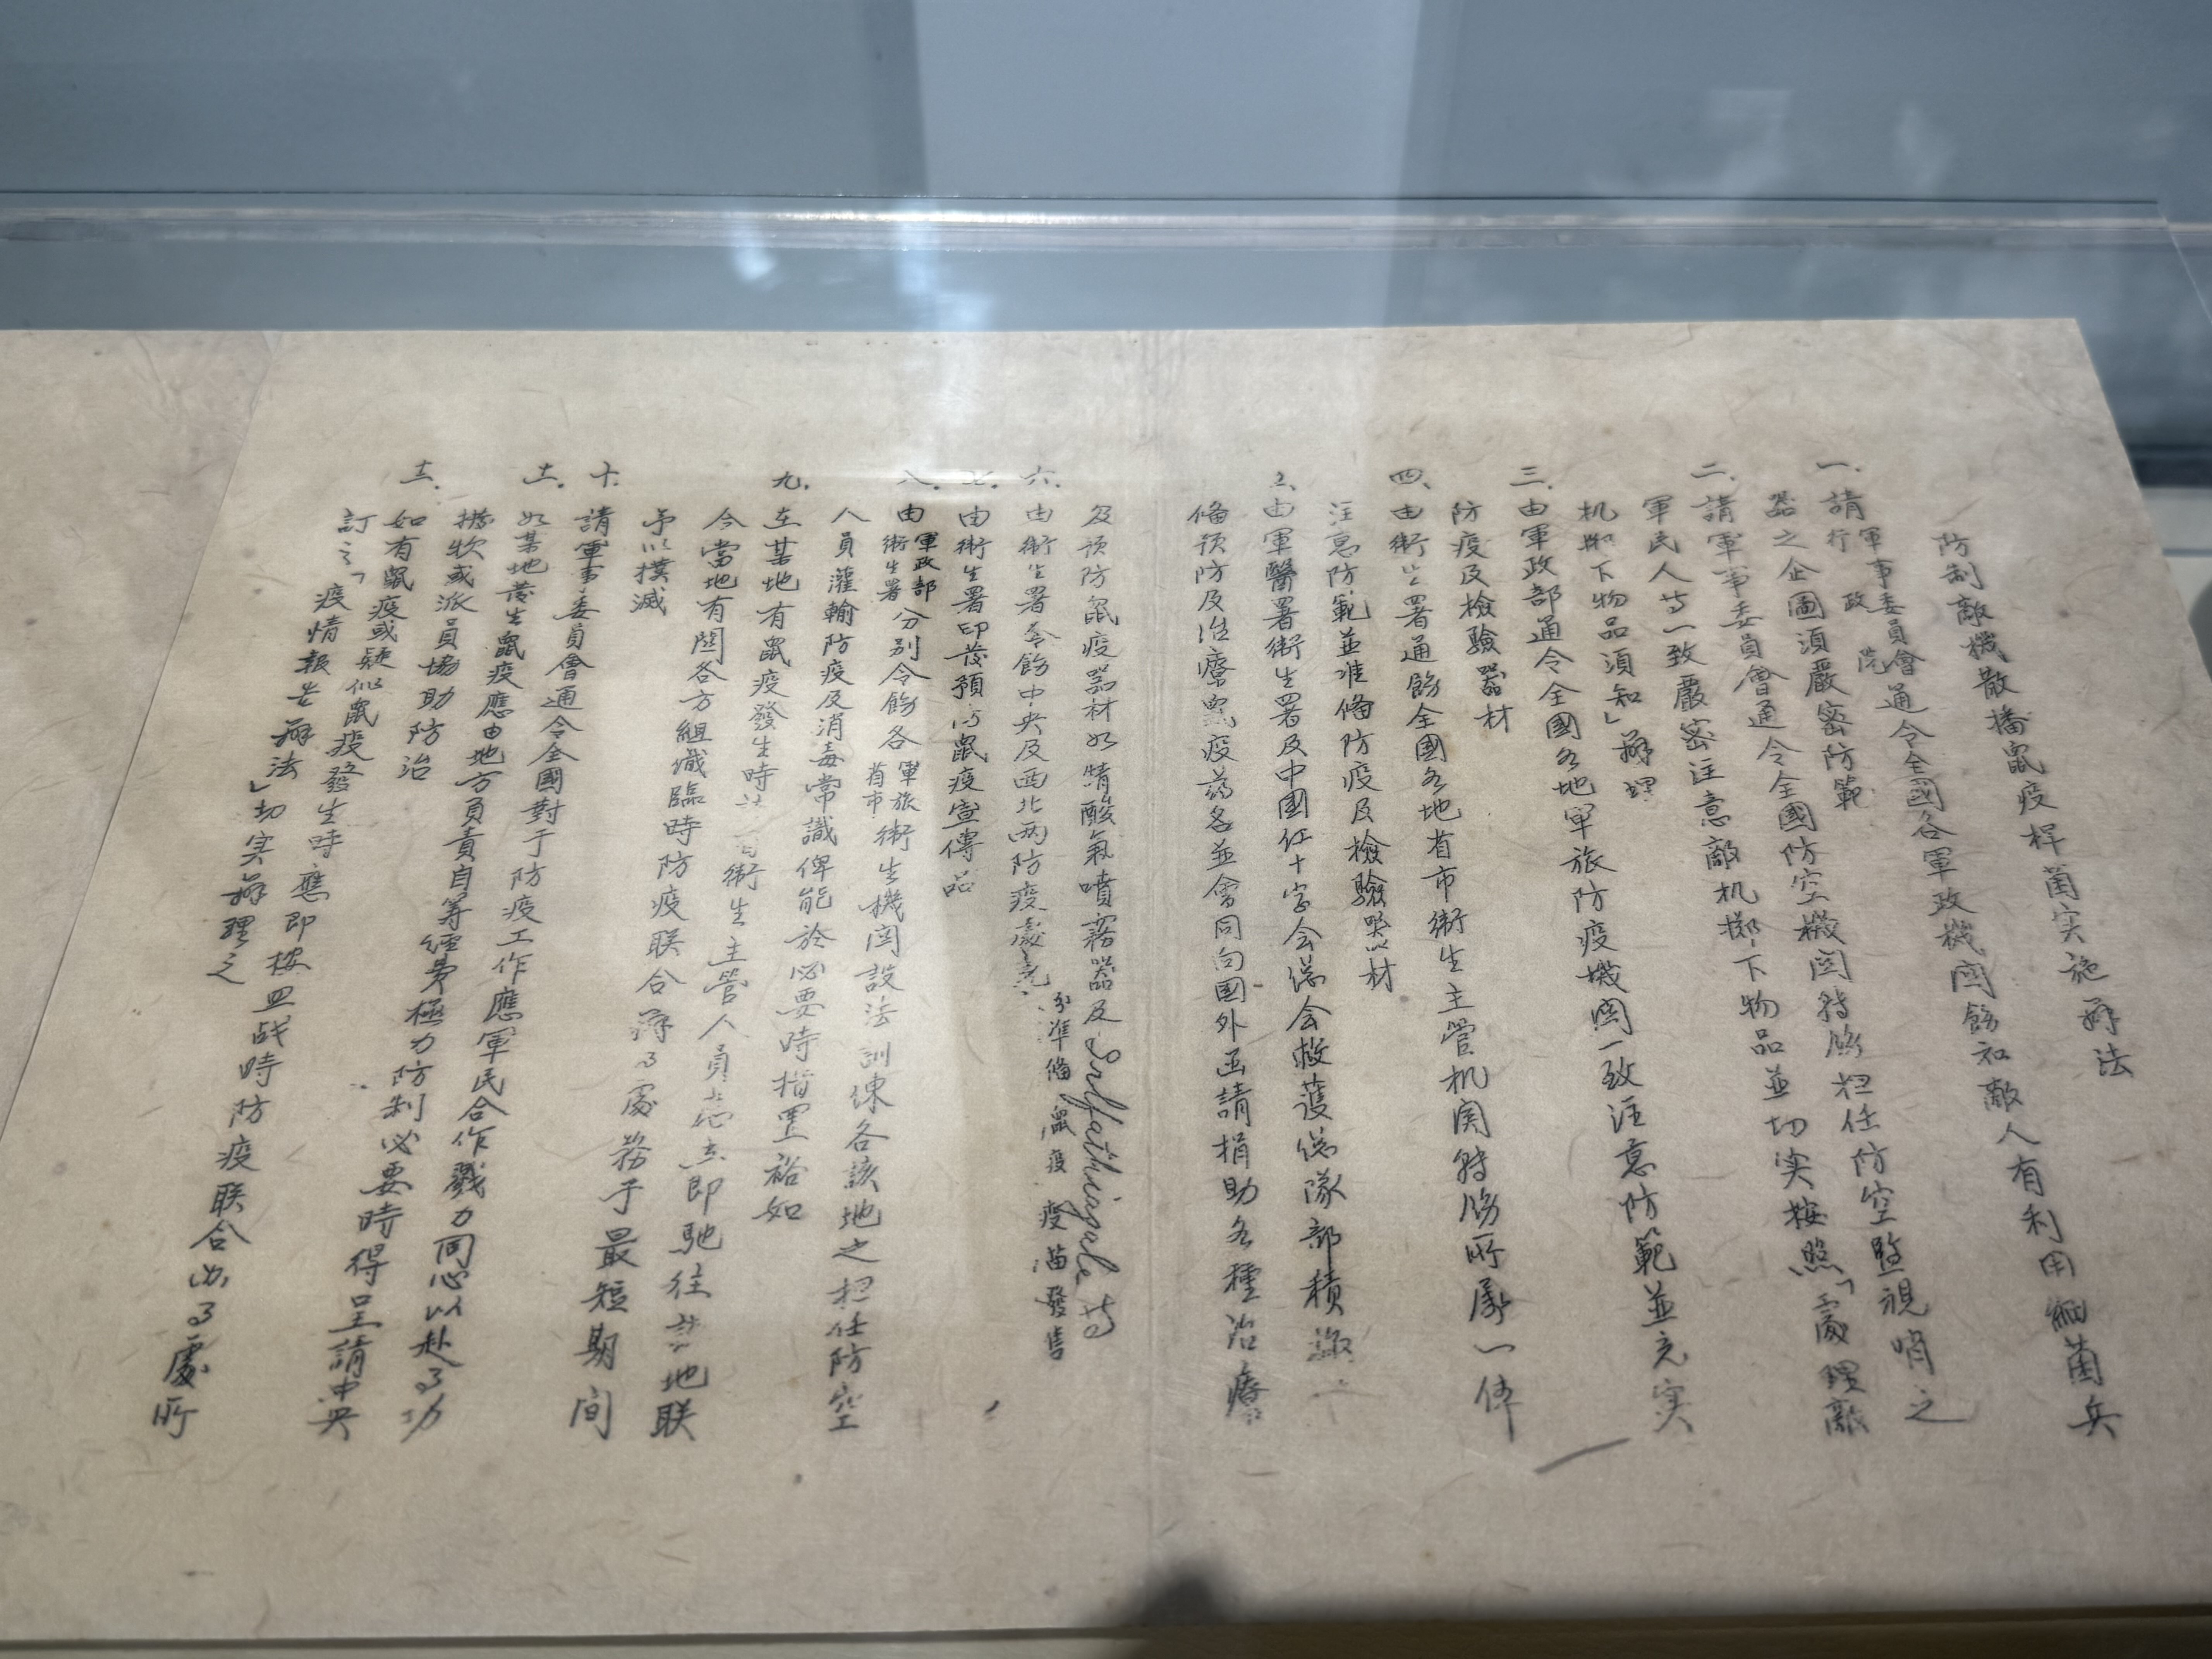 防制敵機散播鼠疫桿菌实施辦法
一.請軍事委員會行政院通令全國各軍政機関飭知敵人有利用細菌兵
器之企圖須嚴密防範
二.請軍事委員會通令全國防空機関特飭担任防空監視哨之
軍民人等一致嚴密注意敵机擲下物品並切实按照「處理敵
机擲下物品須知」辦理
三.由軍政部通令全國各地軍旅防疫機関一致注意防範並充实
防疫及檢驗器材
四.由衛生署通飭全國各地省市衛生主管机関特飭所屬一体
注意防範並准備防疫及檢驗器材
由軍醫署衛生署及中國红十字会總会救護總隊部積
備預防及治療鼠疫葯名並會同向國外函請捐助各種治療
及預防鼠疫器材如精酸氣噴霧器及Sulfathiazole等
六.由衛生署令飭中央及西北兩防疫處充分準備鼠疫疫苗發售
七.由衛生署印發預防鼠疫宣傳品
八.由軍政部衛生署分別令飭各軍旅省市衛生機関設法訓練各該地之担任防空
人員灌輸防疫及消毒常識俾能於必要時措置裕如
九.在某地有鼠疫發生時衛生主管人員應立即馳往該地联
合當地有関各方組織臨時防疫联合辦事處務于最短期間
予以撲滅
十.請軍事委員會通令全國對于防疫工作應軍民合作戮力同心以赴事功
十一.如某地發生鼠疫應由地方負責自籌經費極力防制必要時得呈請中央
撥欵或派員協助防治
十二.如有鼠疫或疑似鼠疫發生時應即按照战時防疫联合办事處所
訂之「疫情報告辦法」切实辦理之